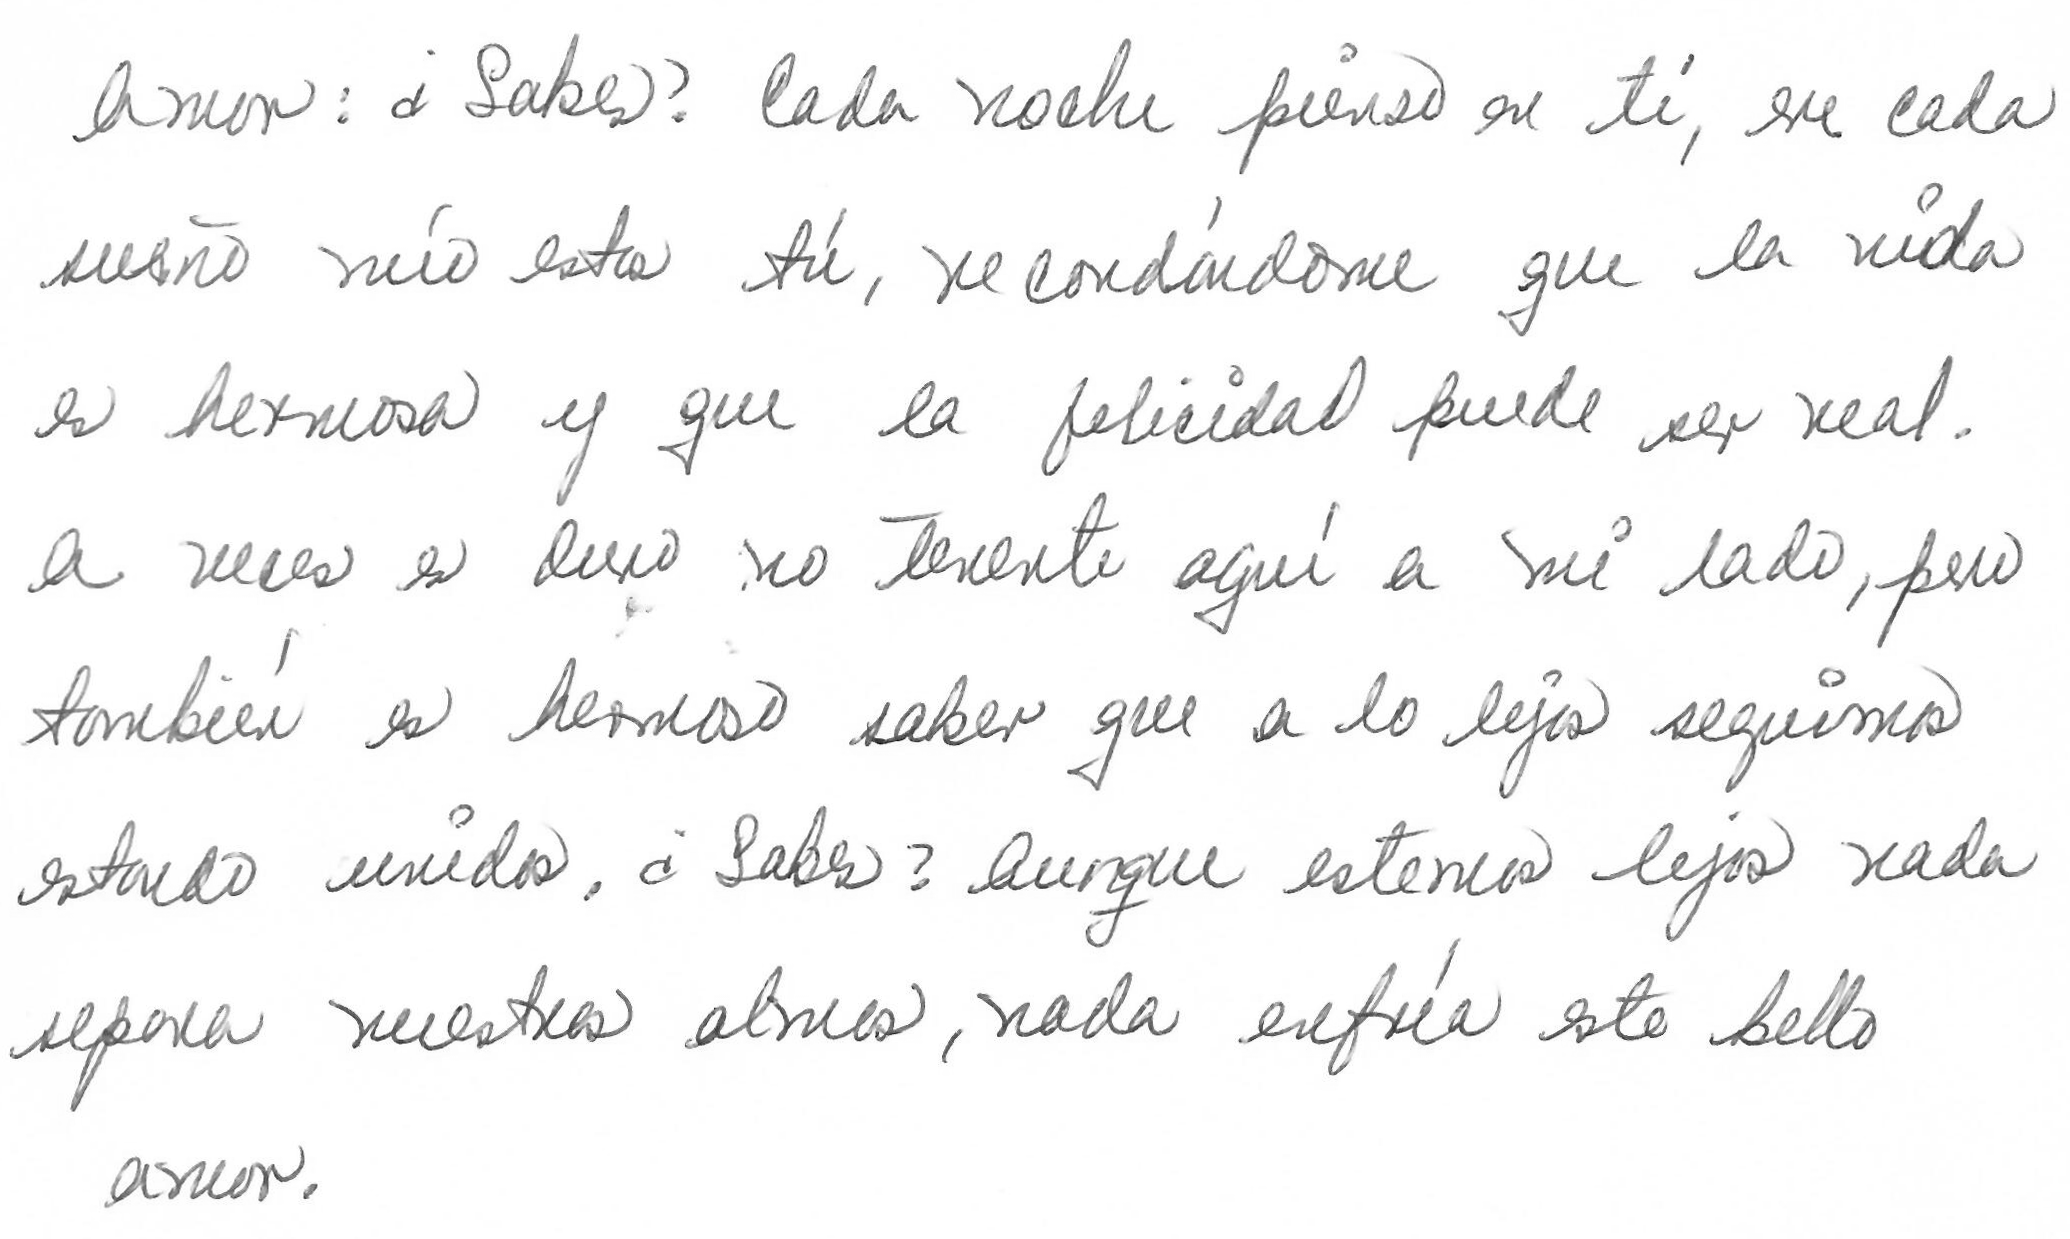 Amor: ¿Sabes? Cada noche pienso en tí, en cada
sueño mío estas tú, recordándome que la vida
es hermosa y que la felicidad puede ser real.
A veces es duro no tenerte aquí a mi lado, pero
también es hermoso saber que a lo lejos seguimos
estando unidos. ¿Sabes? Aunque estemos lejos nada
separa nuestras almas, nada enfría este bello
amor.